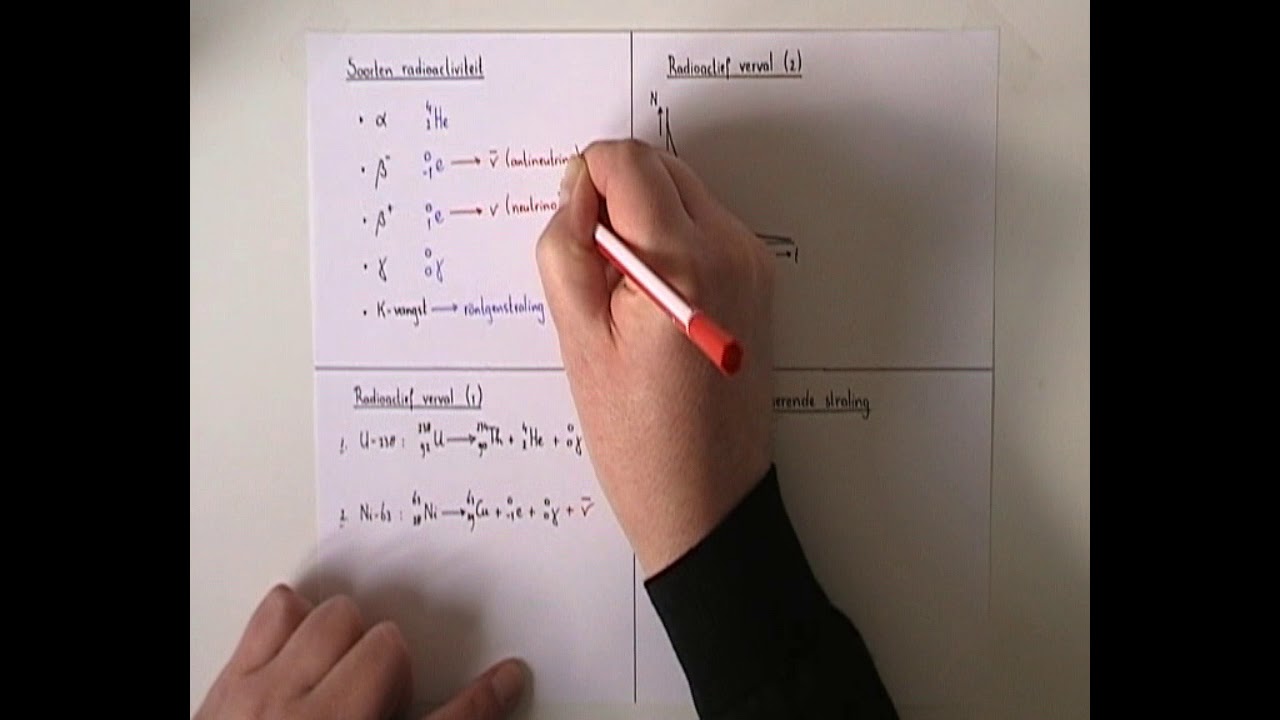 Soorten radioactiviteit
• α ⁴₂He
• β⁻ ⁰₋₁e → ν̄ (antineutrino)
• β⁺ ⁰₁e → ν (neutrino)
• γ ⁰₀γ
• K-vangst → röntgenstraling
Radioactief verval (2)
N
t
Radioactief verval (1)
1. U-238: ²³⁸₉₂U → ²³⁴₉₀Th + ⁴₂He + ⁰₀γ
2. Ni-63: ⁶³₂₈Ni → ⁶³₂₉Cu + ⁰₋₁e + ⁰₀γ + ν̄
straling